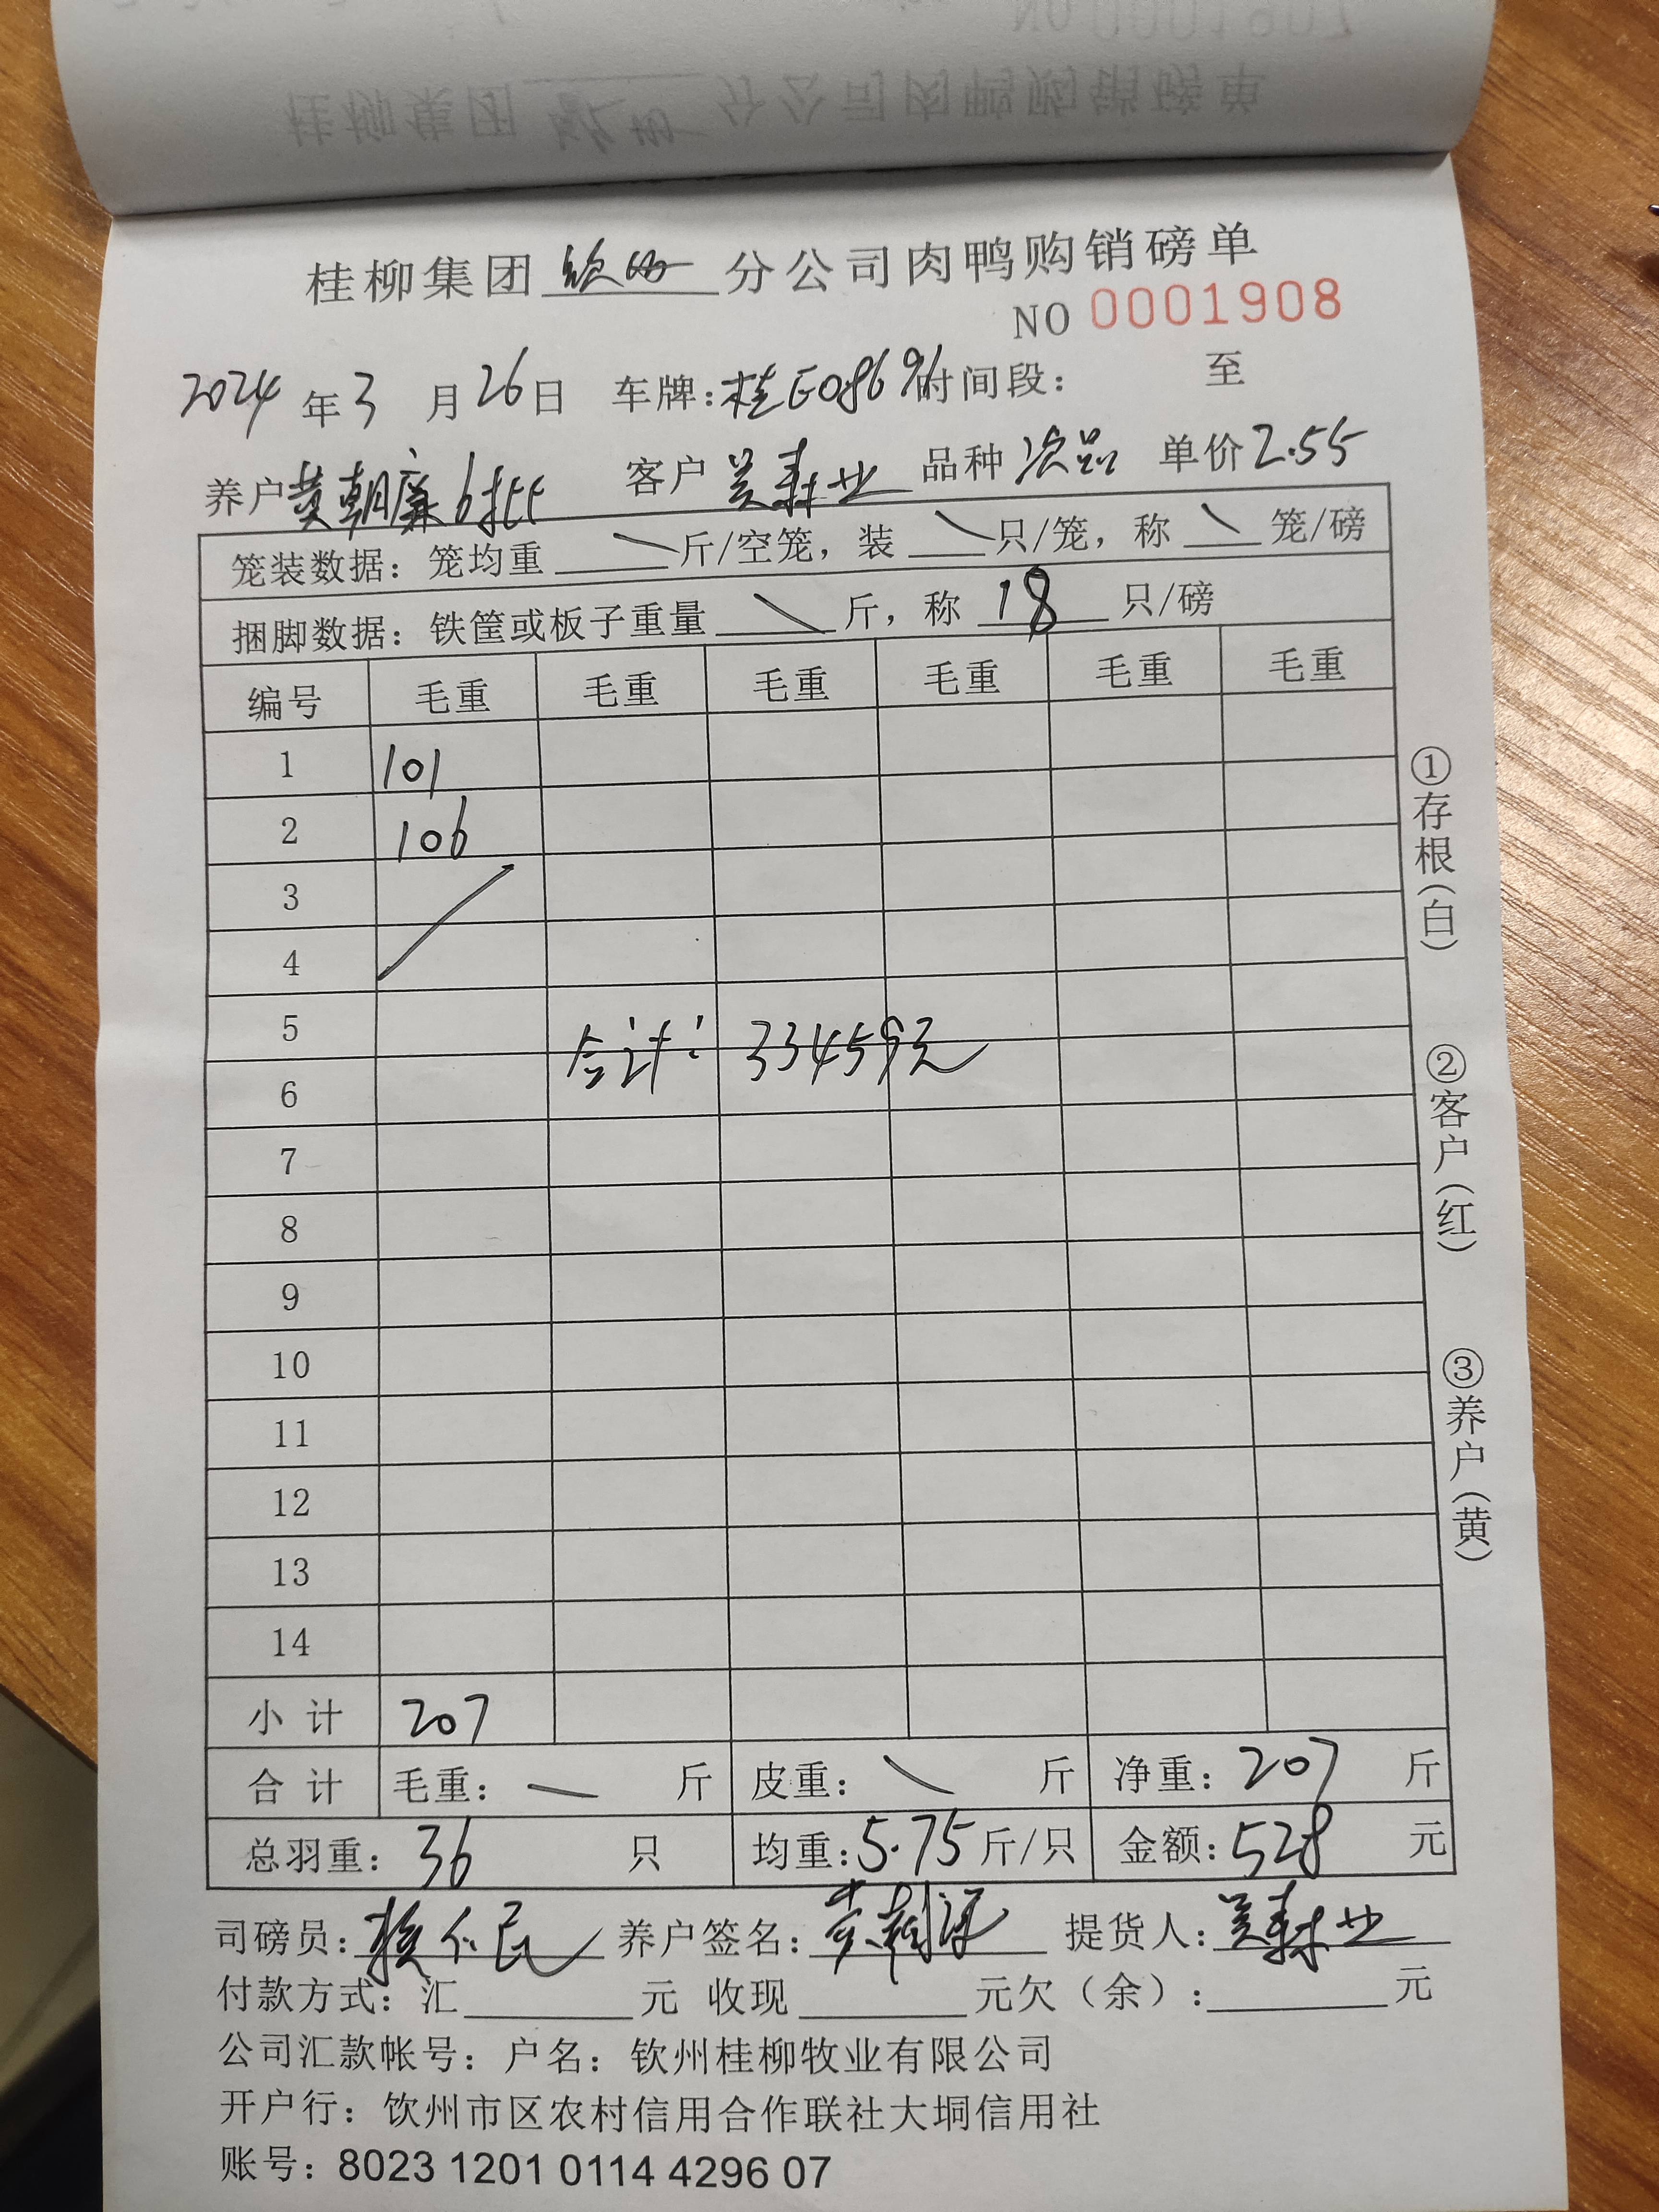 桂柳集团钦州分公司肉鸭购销磅单
NO 0001908
2024年3月26日 车牌:桂E08696时间段: 至
养户黄朝廉6批 客户吴寿业 品种次品 单价2.55
笼装数据: 笼均重 \ 斤/空笼, 装 \ 只/笼, 称 \ 笼/磅
捆脚数据: 铁筐或板子重量 \ 斤, 称 18 只/磅
编号 毛重 毛重 毛重 毛重 毛重 毛重
1 101
2 106
3
4
5
合计: 33459元
6
7
8
9
10
11
12
13
14
小计 207
合计 毛重: — 斤 皮重: \ 斤 净重: 207 斤
总羽重: 36 只 均重:5.75斤/只 金额:528 元
司磅员: 养户签名: 提货人:吴寿业
付款方式: 汇 元 收现 元欠(余): 元
公司汇款帐号: 户名: 钦州桂柳牧业有限公司
开户行: 饮州市区农村信用合作联社大垌信用社
账号: 8023 1201 0114 4296 07
①存根(白)
②客户(红)
③养户(黄)